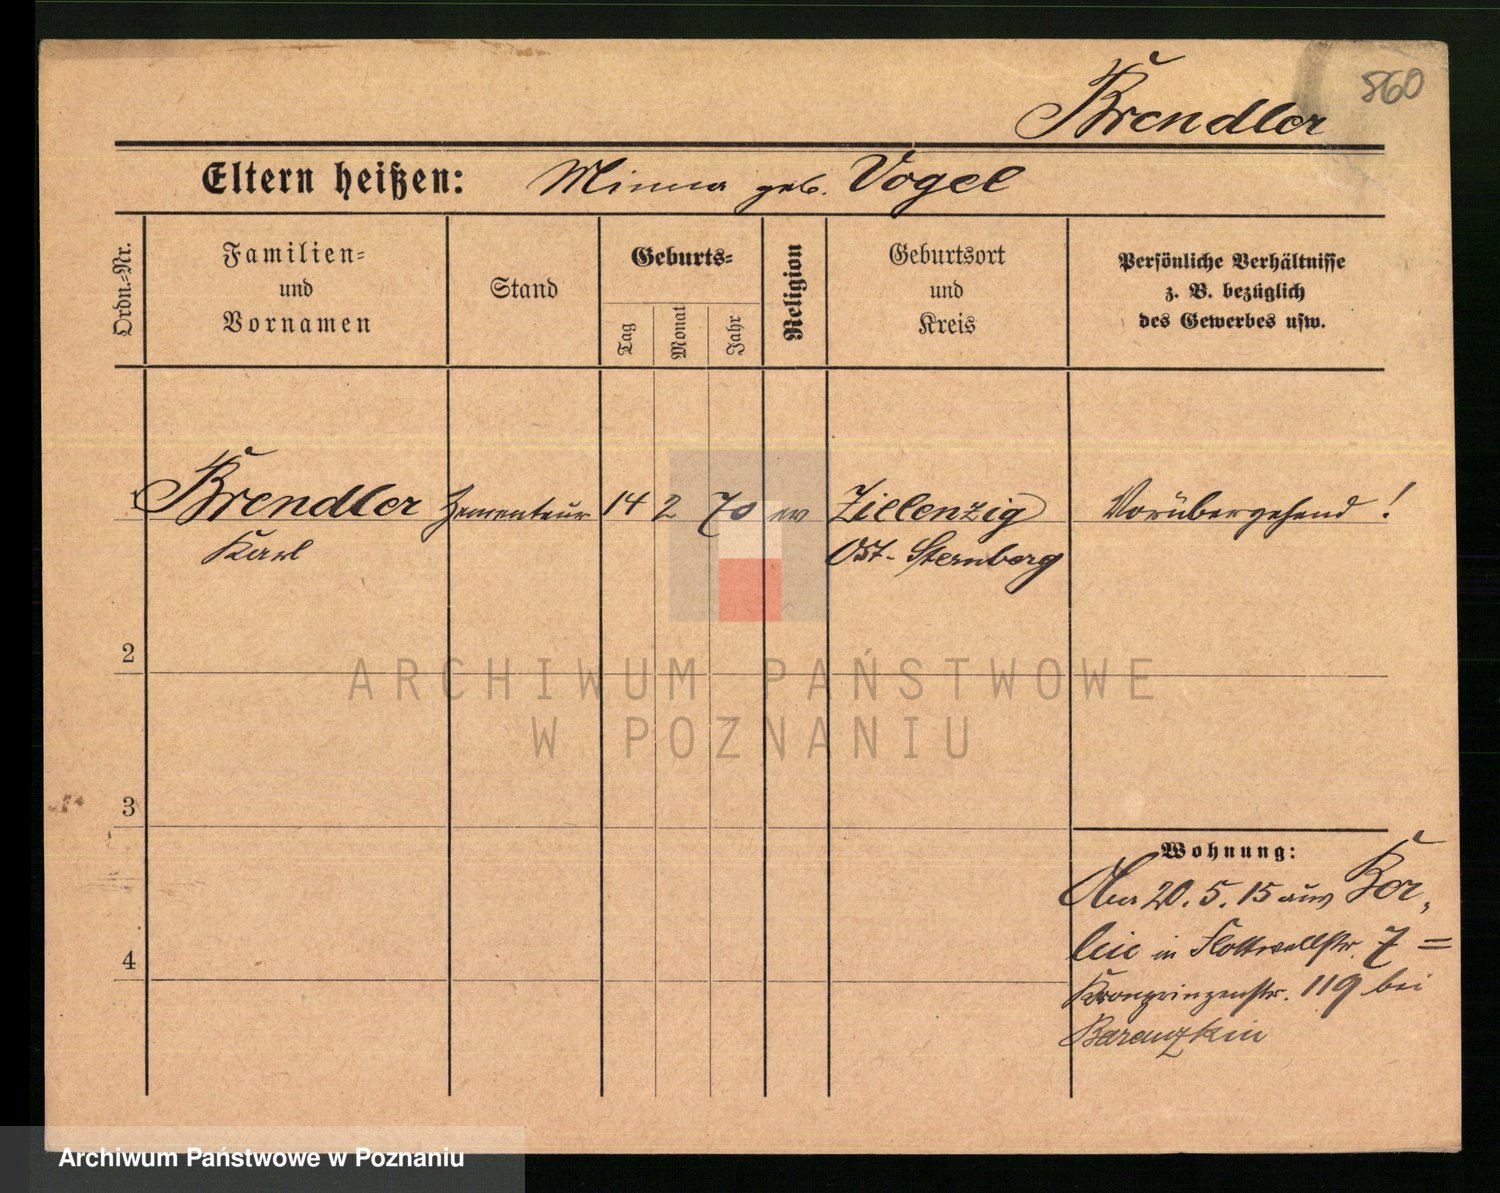 860
Brendler
Eltern heißen: Minna geb. Vogel
Ordn.=Nr.
Familien=
und
Vornamen
Stand
Geburts=
Tag
Monat
Jahr
Religion
Geburtsort
und
Kreis
Persönliche Verhältnisse
z. B. bezüglich
des Gewerbes usw.
Brendler Zementeur 14 2 70 ev Zielenzig Vorübergehend!
Karl Ost-Sternberg
2
3
4
Wohnung:
Am 20. 5. 15 aus Ber-
lin in Flottwellstr. 7 =
Kronprinzenstr. 119 bei
ARCHIWUM PAŃSTWOWE
W POZNANIU
Archiwum Państwowe w Poznaniu